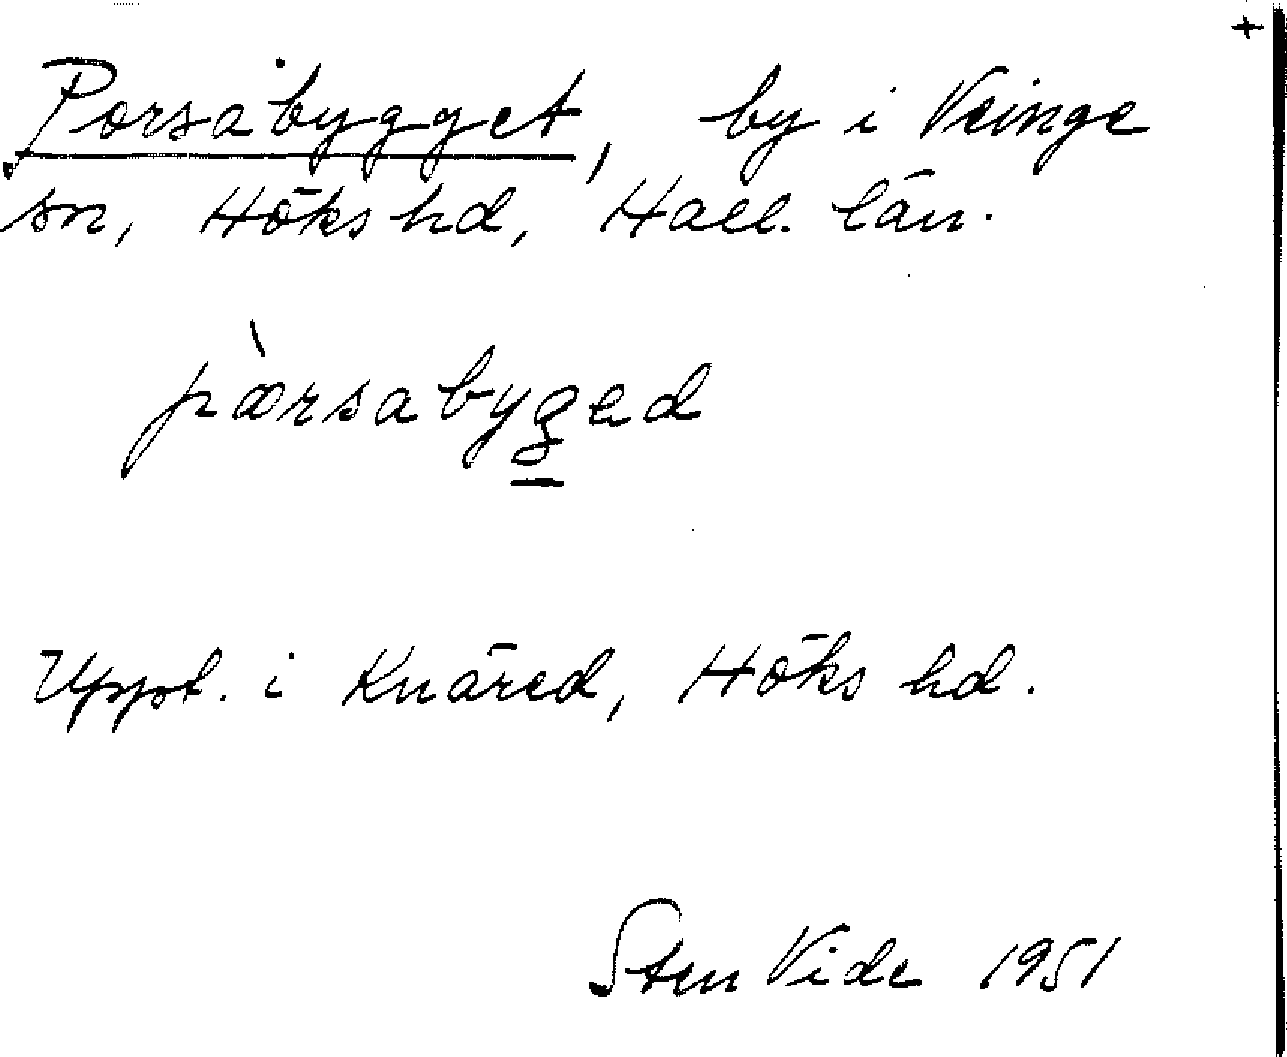 +
Porsabygget, by i Veinge
sn, Höks hd, Hall. län.
pàrsabyged
Uppt. i Knäred, Höks hd.
Sten Vide 1951